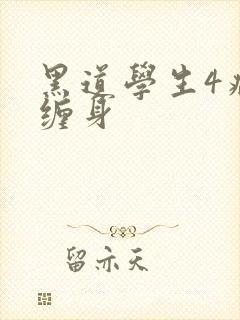 黑道學生4
缠身
留亦天